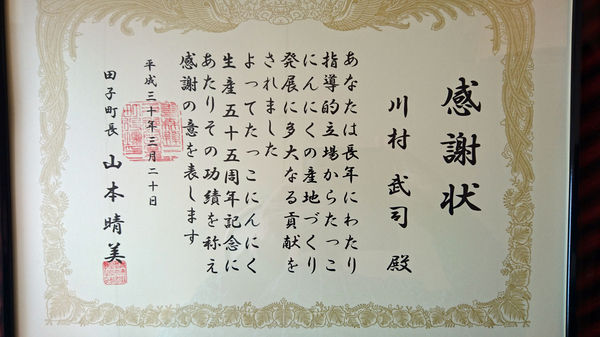 感謝状
川村武司 殿
あなたは長年にわたり
指導的立場からたっこ
にんにくの産地づくり
発展に多大なる貢献を
されました
よってたっこにんにく
生産五十五周年記念に
あたりその功績を称え
感謝の意を表します
平成三十年三月二十日
田子町長 山本晴美